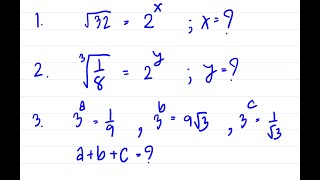 1. √32 = 2^x ; x = ?
2. ∛(1/8) = 2^y ; y = ?
3. 3^a = 1/9 , 3^b = 9√3 , 3^c = 1/√3
a+b+c = ?